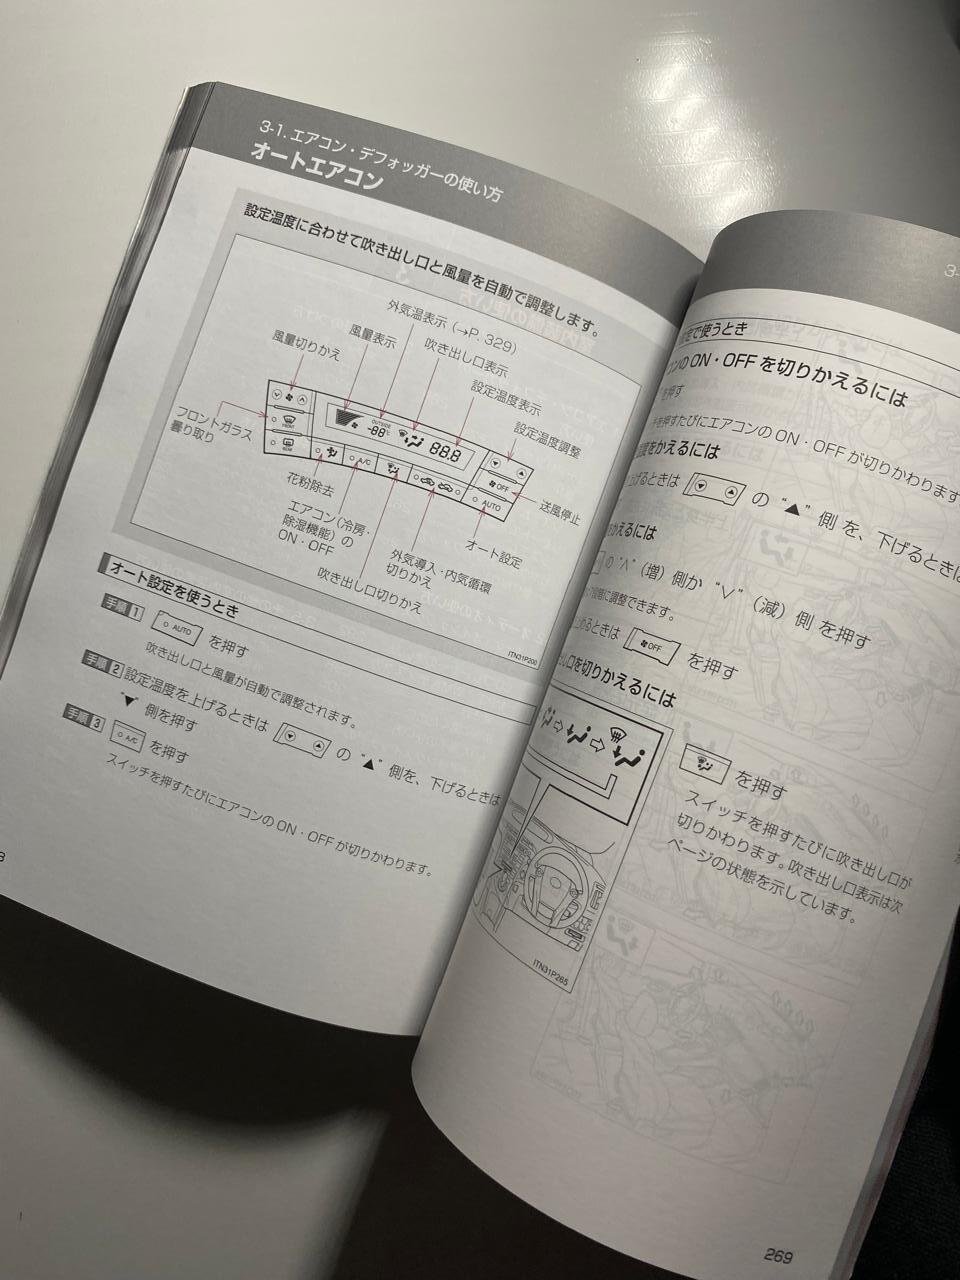 3-1. エアコン・デフォッガーの使い方
オートエアコン
設定温度に合わせて吹き出し口と風量を自動で調整します。
外気温表示(→P. 329)
風量表示
吹き出し口表示
風量切りかえ
設定温度表示
設定温度調整
フロントガラス
曇り取り
FRONT
REAR
OUTSIDE
-88℃
88.8
A/C
OFF
AUTO
花粉除去
送風停止
エアコン(冷房・
除湿機能)の
ON・OFF
オート設定
外気導入・内気循環
切りかえ
吹き出し口切りかえ
ITN31P200
オート設定を使うとき
手順 1 AUTO を押す
吹き出し口と風量が自動で調整されます。
手順 2 設定温度を上げるときは の “▲” 側を、下げるときは
“▼” 側を押す
手順 3 A/C を押す
スイッチを押すたびにエアコンの ON・OFF が切りかわります。
8
3-
で使うとき
ンの ON・OFF を切りかえるには
を押す
チを押すたびにエアコンの ON・OFF が切りかわります
温度をかえるには
上げるときは の “▲” 側 を、下げるときは
をかえるには
の “∧”(増)側か “∨”(減)側 を押す
に調整できます。
止めるときは OFF を押す
出し口を切りかえるには
を押す
スイッチを押すたびに吹き出し口が
切りかわります。吹き出し口表示は次
ページの状態を示しています。
ITN31P265
269